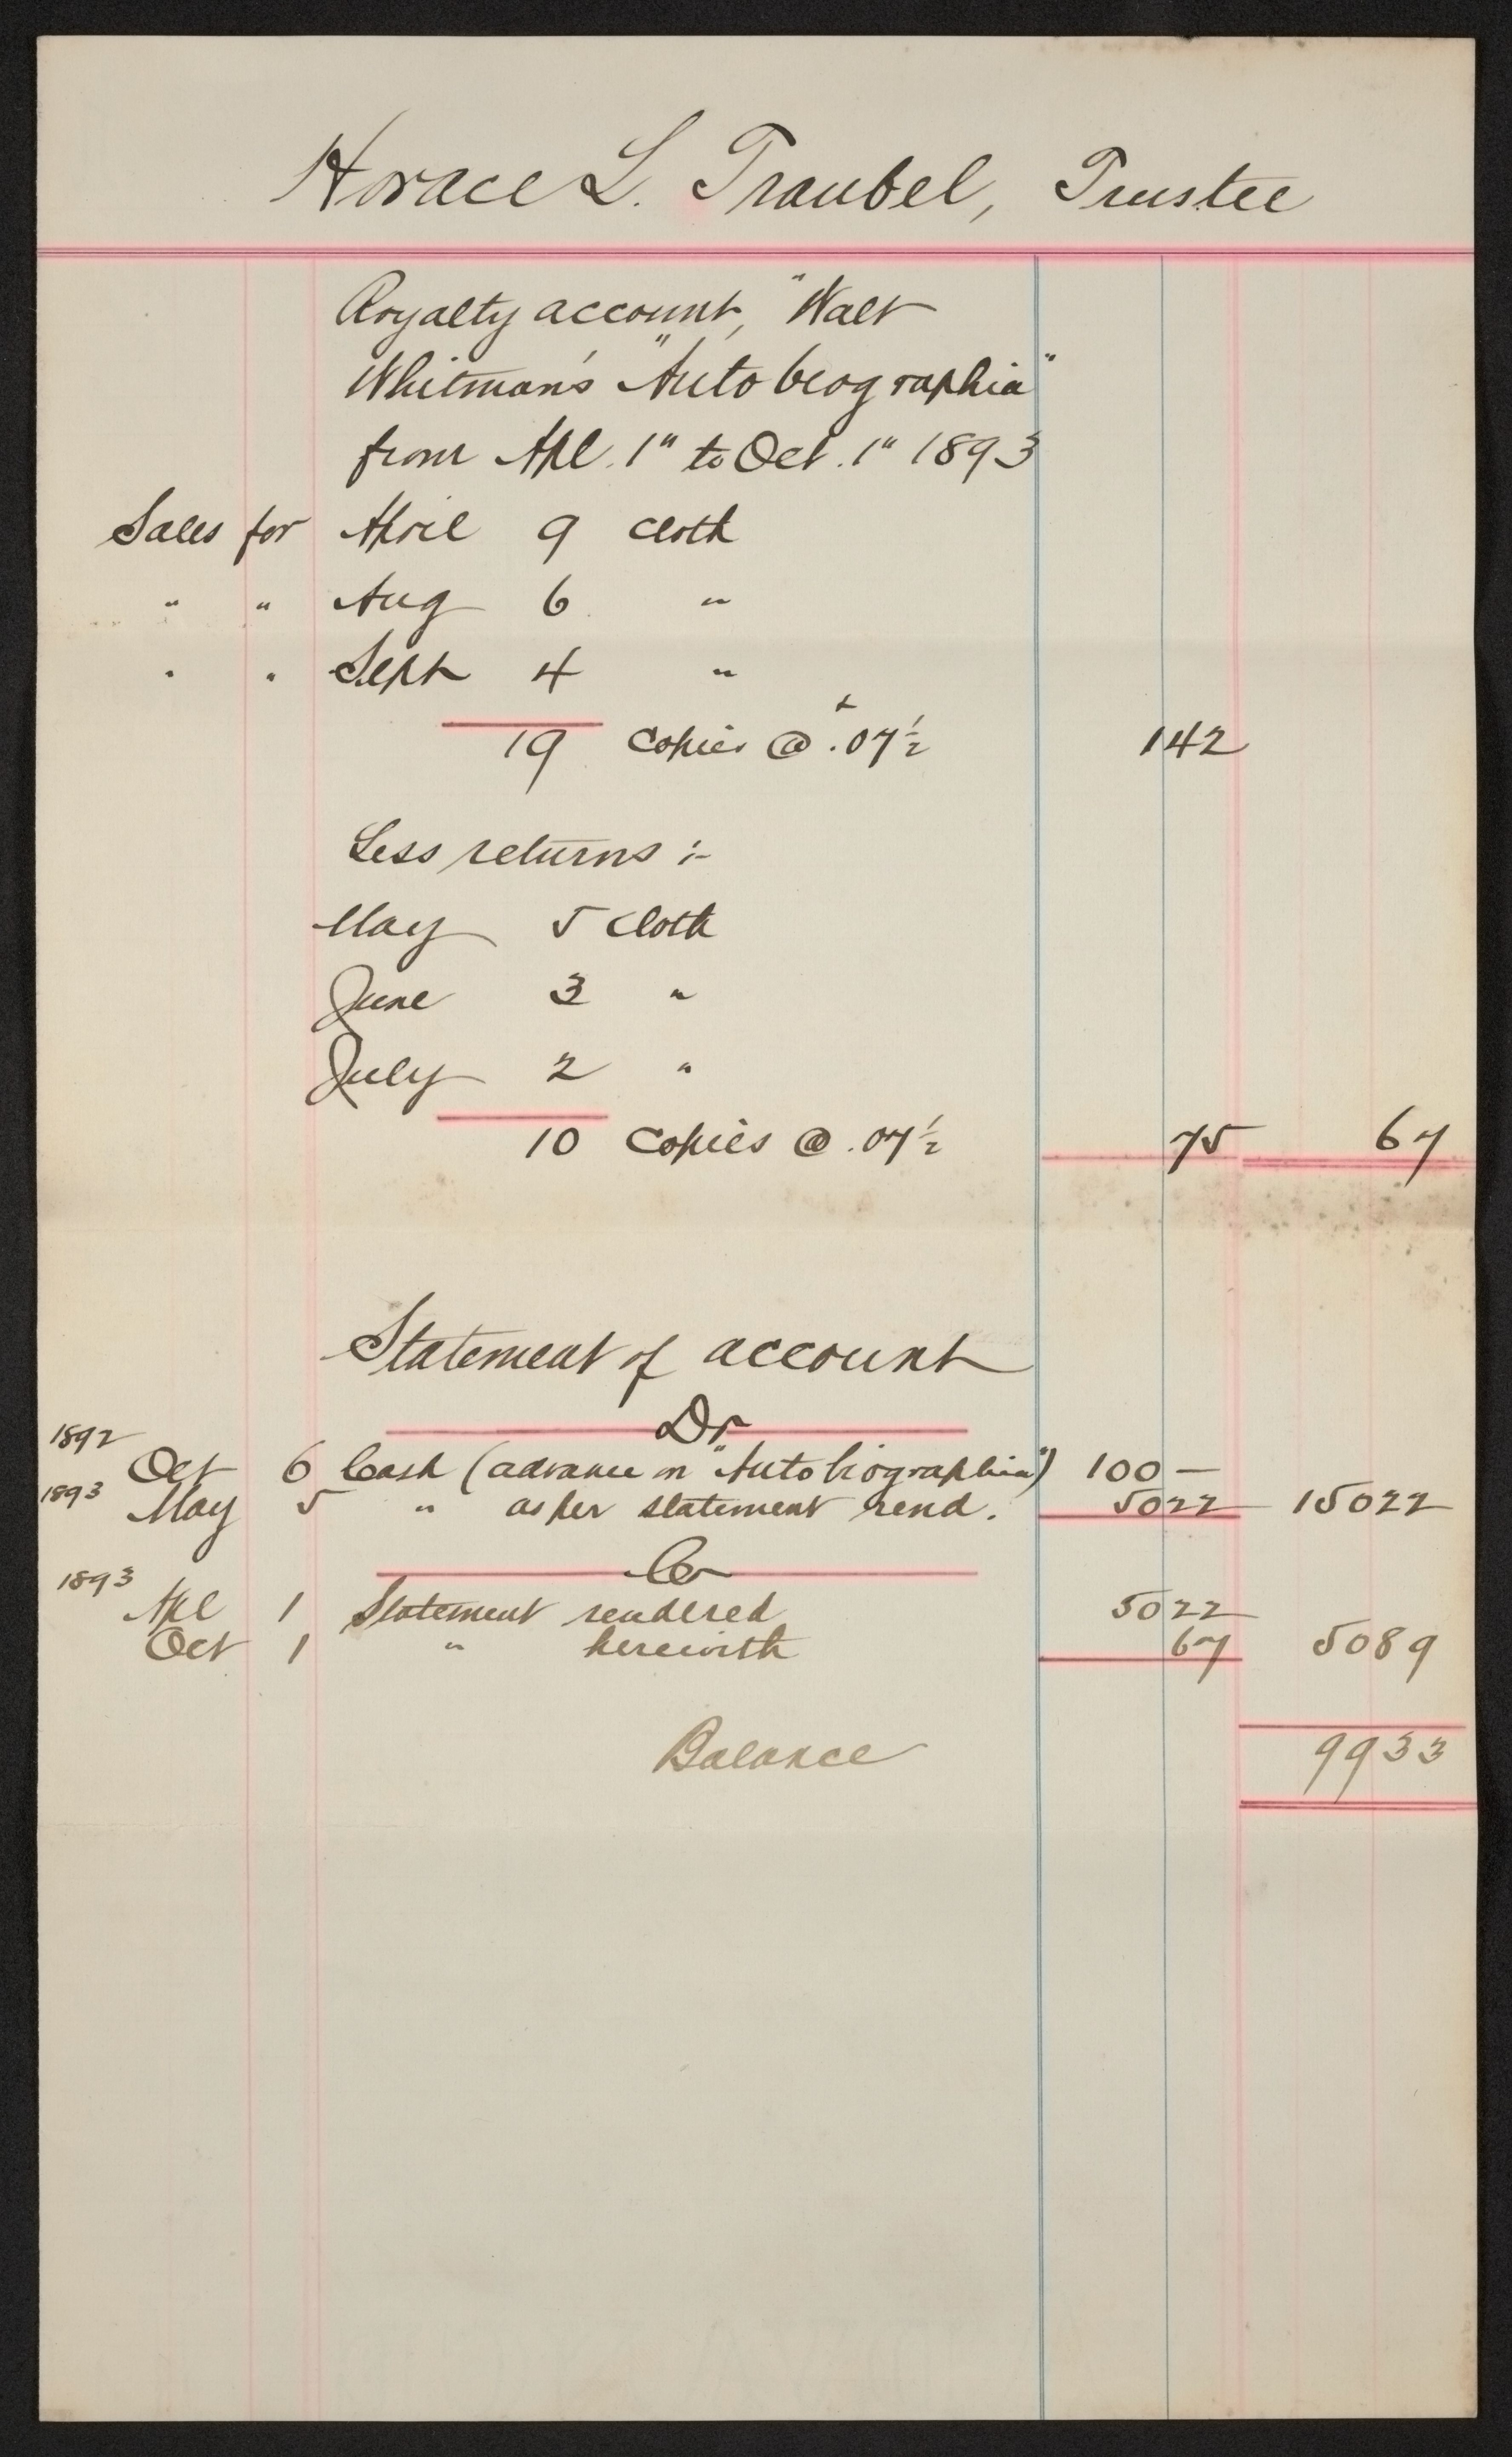 Horace L. Traubel, Trustee
Royalty account, "Walt
Whitman's "Autobiographia"
from Apl. 1" to Oct. 1" 1893
Sales for April 9 cloth
" " Aug 6 "
" " Sept 4 "
19 copies @ .07½ 1 42
Less returns :-
May 5 cloth
June 3 "
July 2 "
10 copies @ .07½ 75 67
Statement of account
Dr
1892
Oct 6 Cash (advance on "Autobiographia") 100 —
1893
May 5 " as per statement rend. 50 22 150 22
Cr
1893
Apl 1 Statement rendered 50 22
Oct 1 " herewith 67 50 89
Balance 99 33